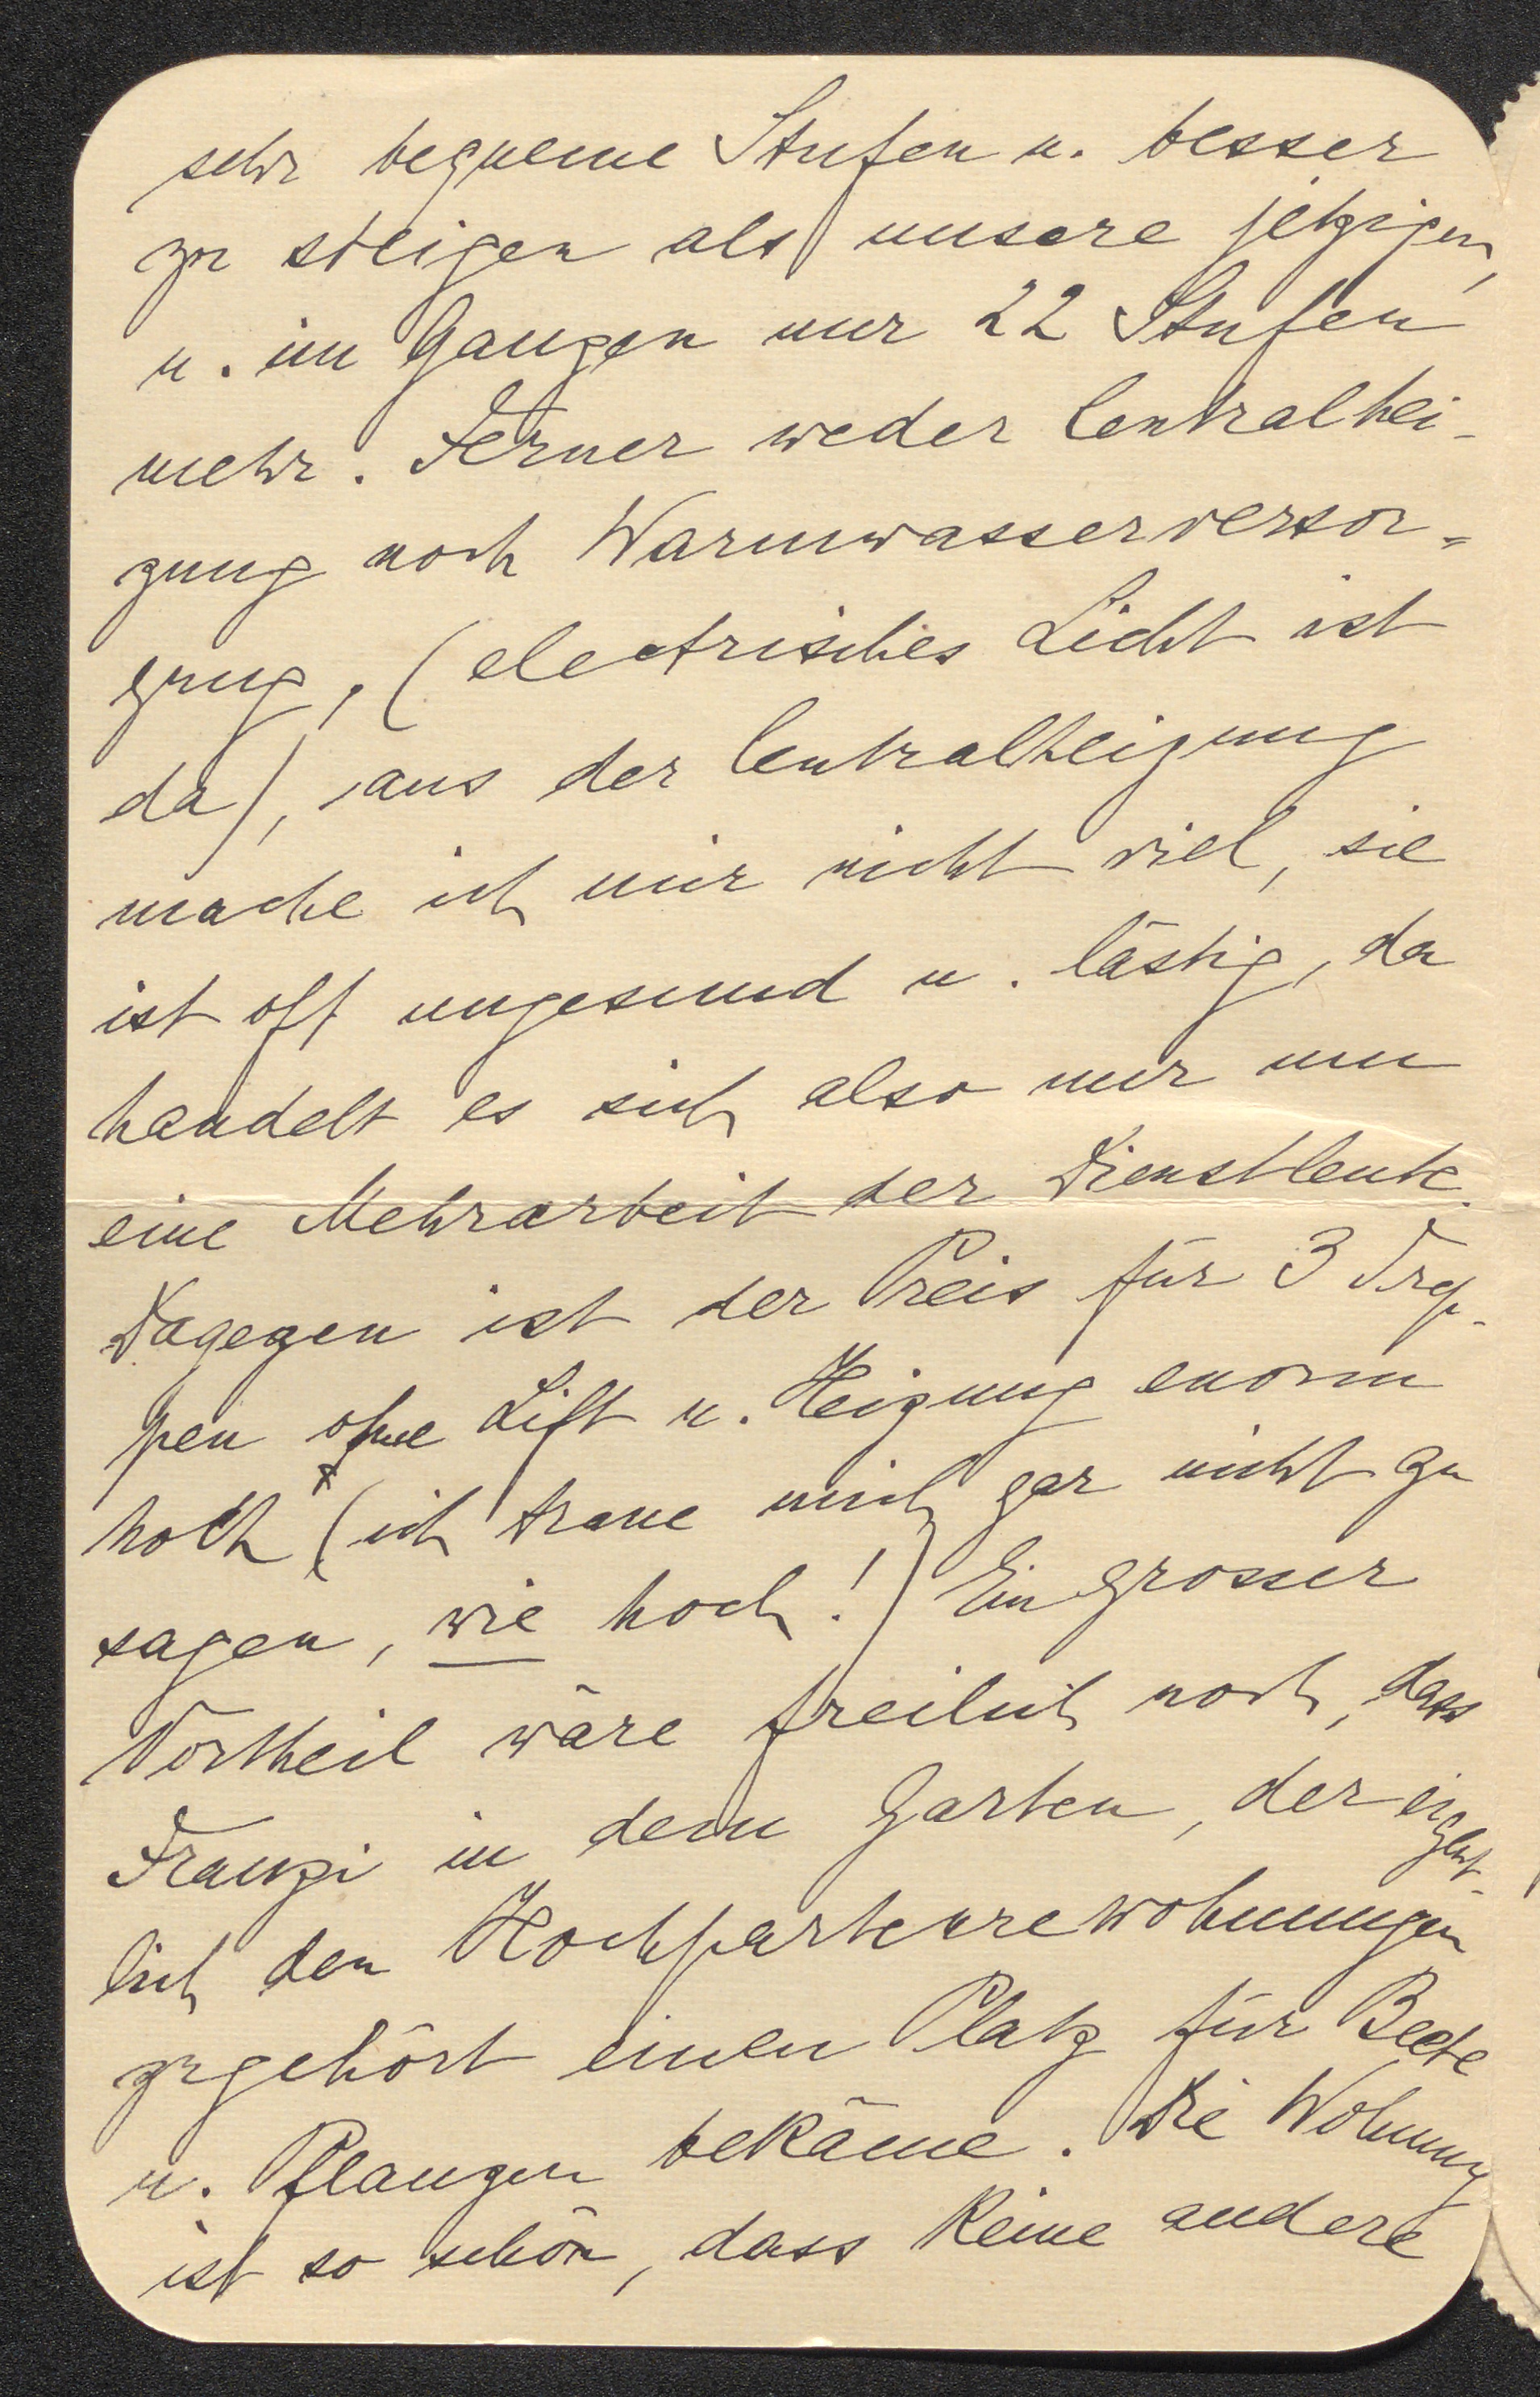 sehr bequeme Stufen u. besser
zu steigen als unsere jetzigen,
u. im Ganzen nur 22 Stufen
mehr. Ferner weder Centralhei-
zung noch Warmwasserversor-
gung, (electrisches Licht ist
da), aus der Centralheizung
mache ich mir nicht viel, sie
ist oft ungesund u. lästig, da
handelt es sich also nur um
eine Mehrarbeit der Dienstleute.
Dagegen ist der Preis für 3 Trep-
pen ohne Lift u. Heizung enorm
hoch x (ich traue mich gar nicht zu
sagen, wie hoch!) Ein grosser
Vortheil wäre freilich noch, dass
Franzi in dem Garten, der eigent-
lich den Hochparterrewohnungen
zugehört einen Platz für Beete
u. Pflanzen bekäme. Die Wohnung
ist so schön, dass keine andere